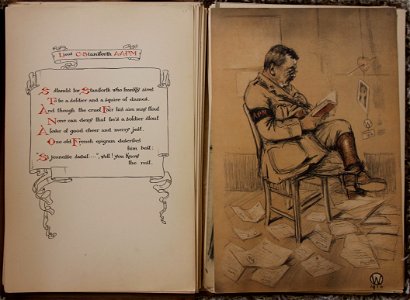 C Staniforth A.A.P.M
S for Staniforth who frankly aims
To be a soldier and a squire of dames.
And though the cruel Fair his aim may flout
None can deny that he's a soldier stout
A lover of good cheer and merry jest.
One old French epigram describes
him best:
Si jeunesse savait... Well! you know
the rest.
APM